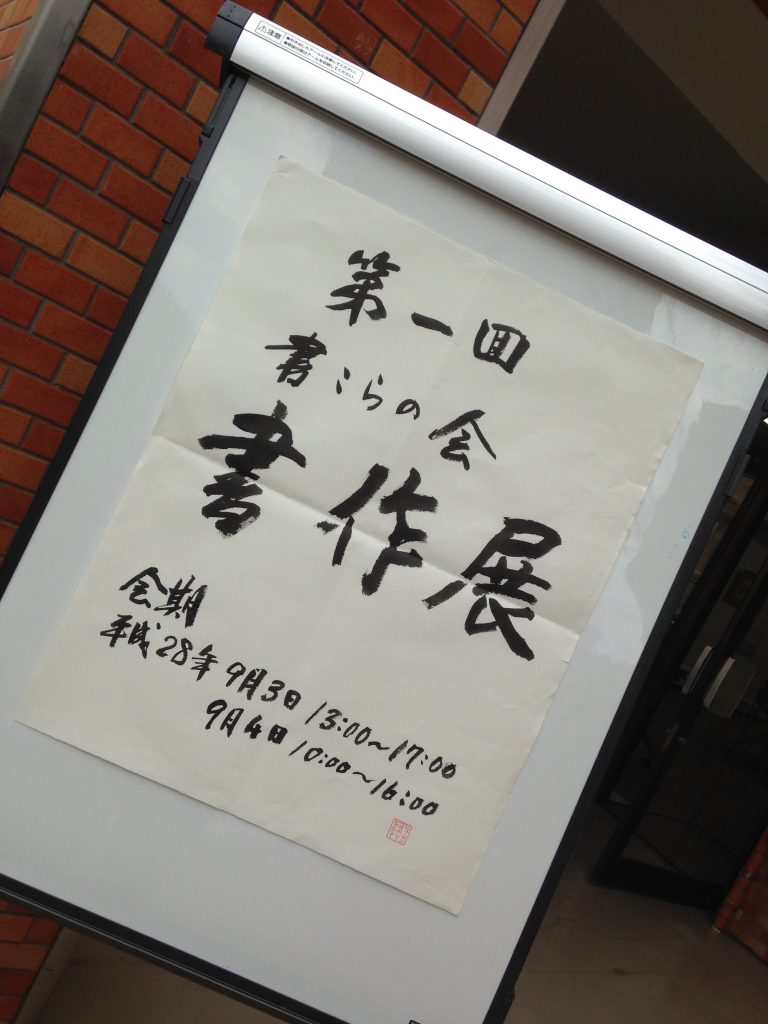 ⚠注意
第一回
書こらの会
書作展
会期
平成28年 9月3日 13:00~17:00
9月4日 10:00~16:00